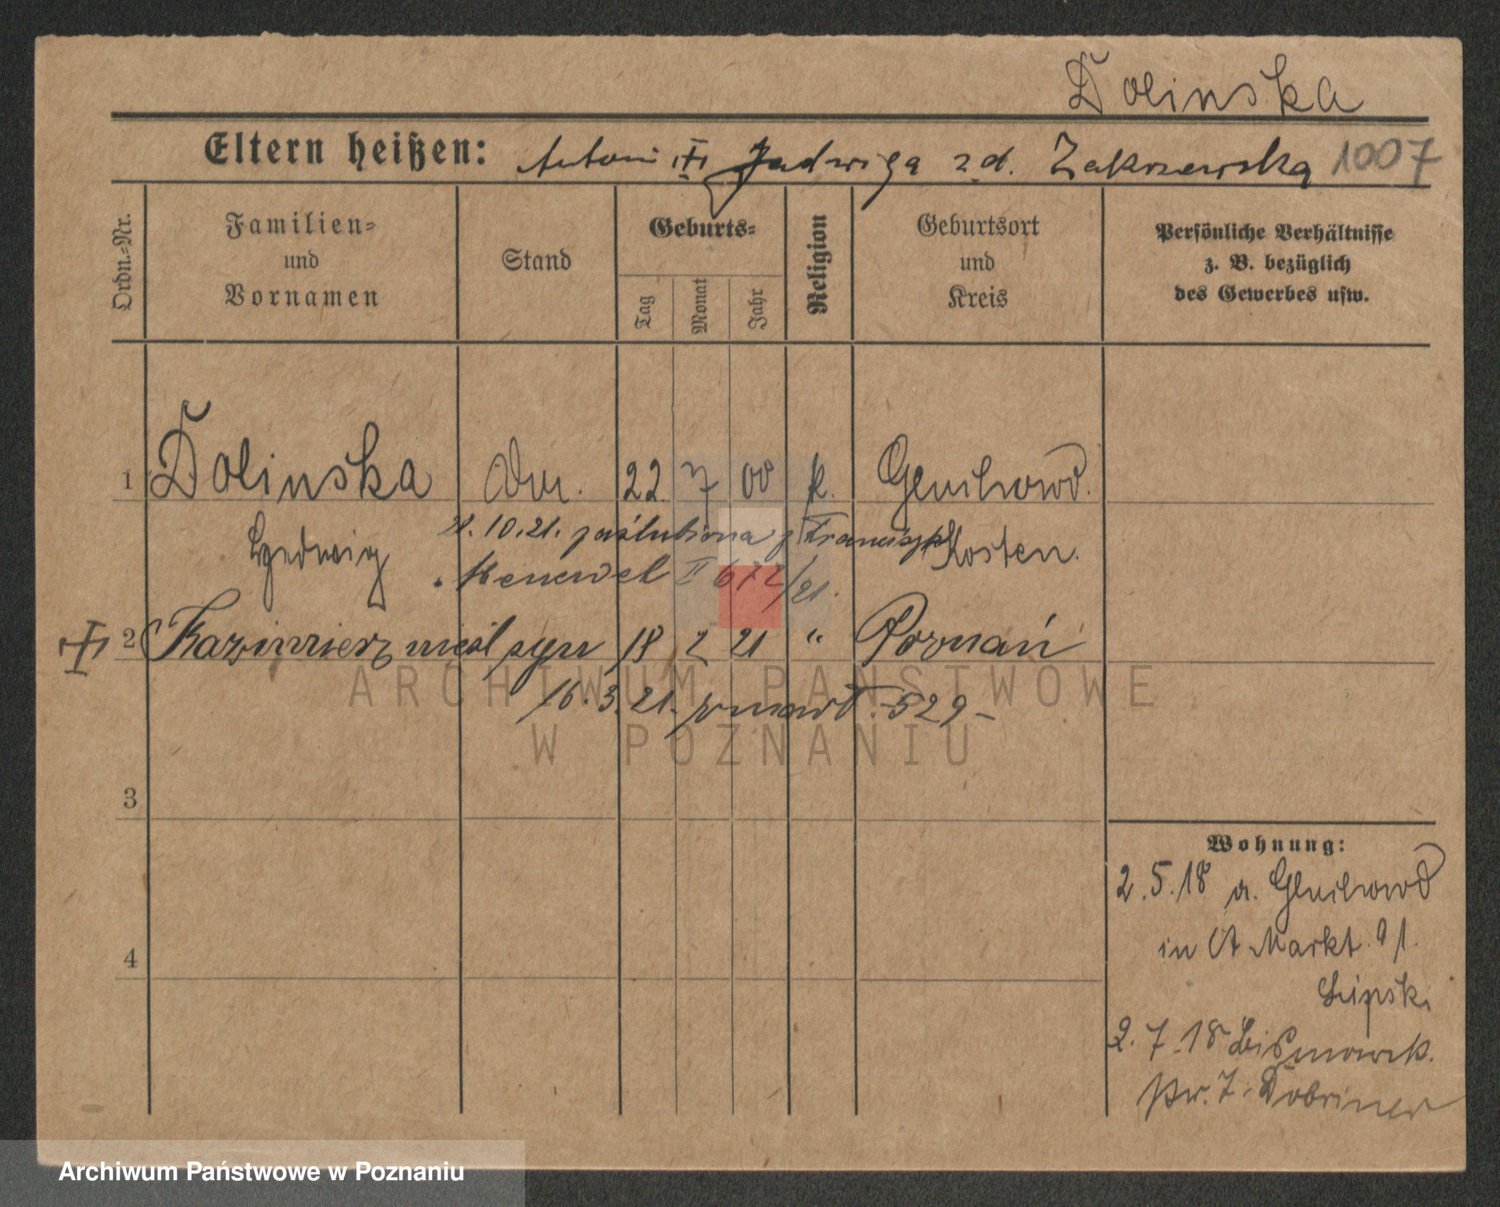 Dolinska
Eltern heißen: Antoni ... Jadwiga z d. Zakrzewska 1007
Ordn.-Nr.
Familien-
und
Vornamen
Stand
Geburts-
Tag
Monat
Jahr
Religion
Geburtsort
und
Kreis
Persönliche Verhältnisse
z. B. bezüglich
des Gewerbes usw.
1 Dolinska 22 7 00 k. Gluchowo.
Hedwig Kosten.
10.21. zaślubiona z Franciszk
II 672/21.
2 Kazimierz syn 18 2 21 " Poznań
16.3.21. zmarł 529
3
4
Wohnung:
2.5.18 a. Gluchowo
in A Markt 91.
Lipski
2.7.18 Bismarck
7. Dobriner
ARCHIWUM PAŃSTWOWE
W POZNANIU
Archiwum Państwowe w Poznaniu